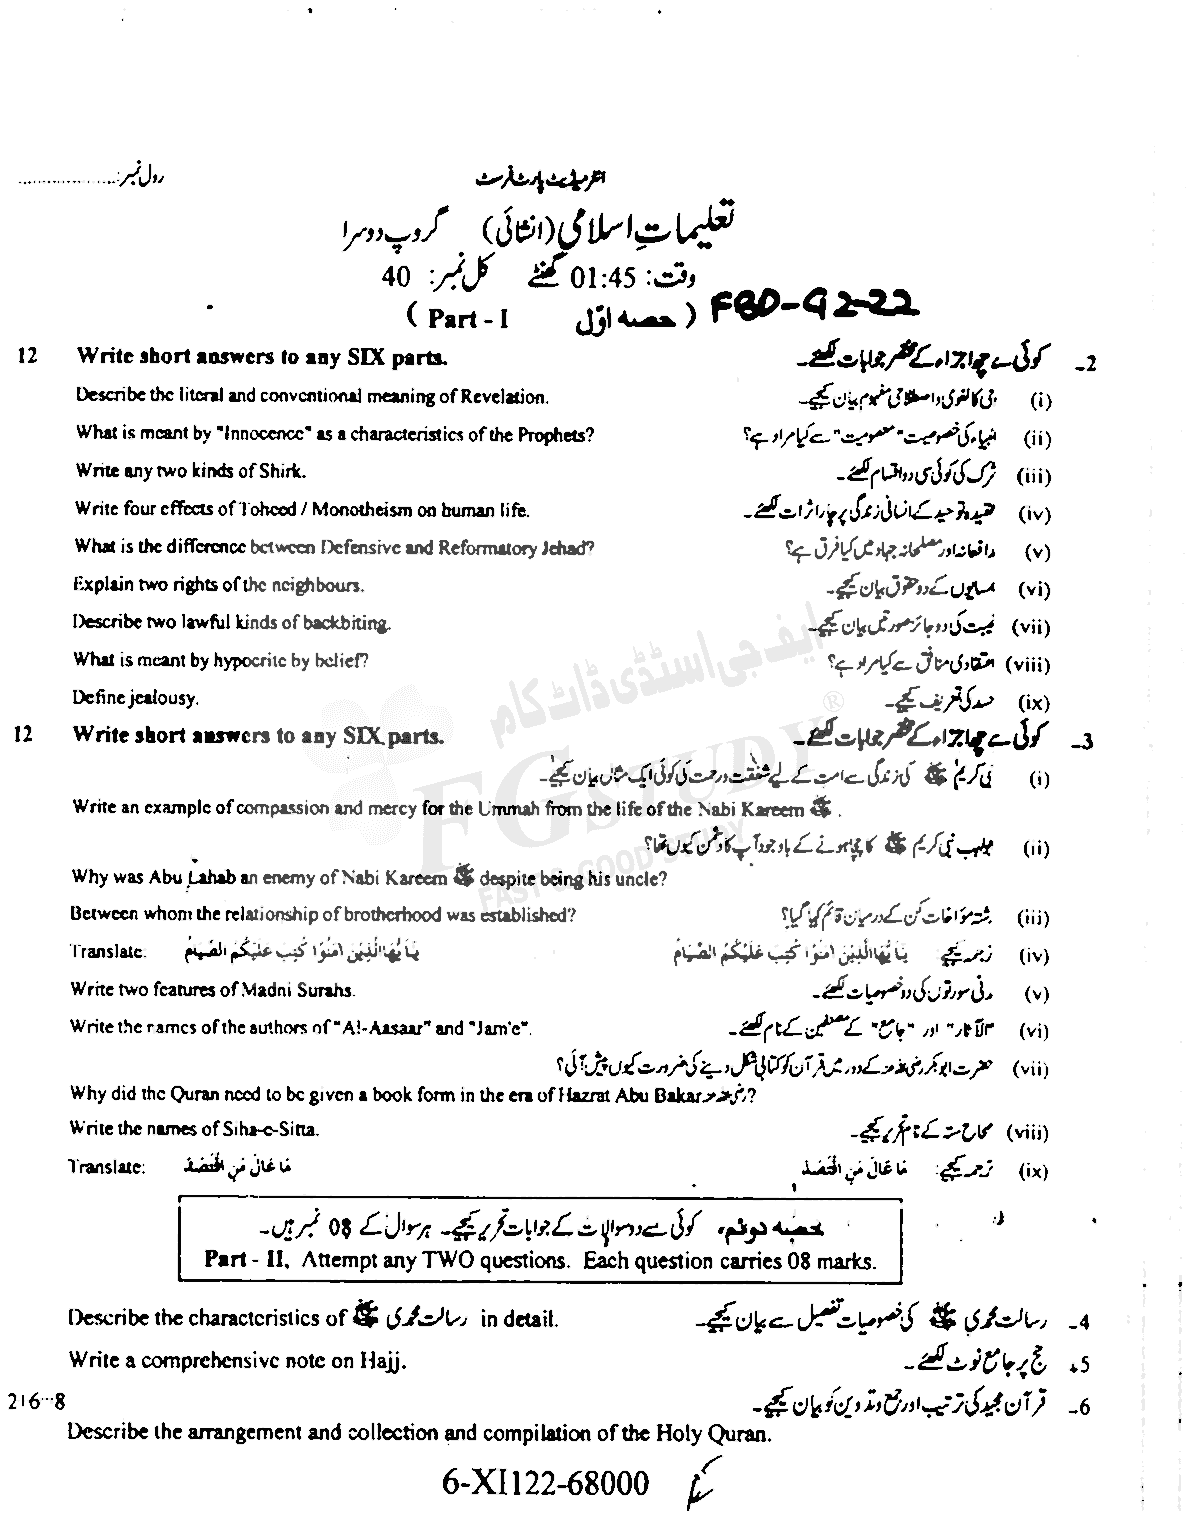 رول نمبر:....................
انٹرمیڈیٹ پارٹ فرسٹ
تعلیماتِ اسلامی (انشائی) گروپ دوسرا
وقت: 01:45 گھنٹے کل نمبر: 40
( Part - I حصہ اوّل ) FBD-G2-22
12 Write short answers to any SIX parts. کوئی سے چھ اجزاء کے مختصر جوابات لکھئے۔ 2-
Describe the literal and conventional meaning of Revelation. وحی کا لغوی و اصطلاحی مفہوم بیان کیجیے۔ (i)
What is meant by "Innocence" as a characteristics of the Prophets? انبیاء کی خصوصیت "معصومیت" سے کیا مراد ہے؟ (ii)
Write any two kinds of Shirk. شرک کی کوئی سی دو اقسام لکھئے۔ (iii)
Write four effects of Toheed / Monotheism on human life. عقیدہ توحید کے انسانی زندگی پر چار اثرات لکھئے۔ (iv)
What is the difference between Defensive and Reformatory Jehad? مدافعانہ اور مصلحانہ جہاد میں کیا فرق ہے؟ (v)
Explain two rights of the neighbours. ہمسایوں کے دو حقوق بیان کیجیے۔ (vi)
Describe two lawful kinds of backbiting. غیبت کی دو جائز صورتیں بیان کیجیے۔ (vii)
What is meant by hypocrite by belief? اعتقادی منافق سے کیا مراد ہے؟ (viii)
Define jealousy. حسد کی تعریف کیجیے۔ (ix)
12 Write short answers to any SIX parts. کوئی سے چھ اجزاء کے مختصر جوابات لکھئے۔ 3-
نبی کریم ﷺ کی زندگی سے امت کے لیے شفقت و رحمت کی کوئی ایک مثال بیان کیجیے۔ (i)
Write an example of compassion and mercy for the Ummah from the life of the Nabi Kareem ﷺ.
ابولہب نبی کریم ﷺ کا چچا ہونے کے باوجود آپ کا دشمن کیوں تھا؟ (ii)
Why was Abu Lahab an enemy of Nabi Kareem ﷺ despite being his uncle?
Between whom the relationship of brotherhood was established? رشتہ مؤاخات کن کے درمیان قائم کیا گیا؟ (iii)
Translate: يٰاَيُّهَا الَّذِيْنَ اٰمَنُوْا كُتِبَ عَلَيْكُمُ الصِّيَامُ يٰاَيُّهَا الَّذِيْنَ اٰمَنُوْا كُتِبَ عَلَيْكُمُ الصِّيَامُ ترجمہ کیجیے (iv)
Write two features of Madni Surahs. مدنی سورتوں کی دو خصوصیات لکھئے۔ (v)
Write the names of the authors of "Al-Aasaar" and "Jam'e". "الآثار" اور "جامع" کے مصنفین کے نام لکھئے۔ (vi)
حضرت ابوبکر رضی اللہ عنہ کے دور میں قرآن کو کتابی شکل دینے کی ضرورت کیوں پیش آئی؟ (vii)
Why did the Quran need to be given a book form in the era of Hazrat Abu Bakar رضی اللہ عنہ?
Write the names of Siha-e-Sitta. صحاح ستہ کے نام تحریر کیجیے۔ (viii)
Translate: مَا عَالَ مَنِ اقْتَصَدَ مَا عَالَ مَنِ اقْتَصَدَ ترجمہ کیجیے: (ix)
حصہ دوئم، کوئی سے دو سوالات کے جوابات تحریر کیجیے۔ ہر سوال کے 08 نمبر ہیں۔
Part - II, Attempt any TWO questions. Each question carries 08 marks.
Describe the characteristics of رسالت محمدی ﷺ in detail. رسالت محمدی ﷺ کی خصوصیات تفصیل سے بیان کیجیے۔ 4-
Write a comprehensive note on Hajj. حج پر جامع نوٹ لکھئے۔ 5-
216--8 قرآن مجید کی ترتیب اور جمع و تدوین کو بیان کیجیے۔ 6-
Describe the arrangement and collection and compilation of the Holy Quran.
6-XI122-68000
ایف جی اسٹڈی ڈاٹ کام
FG STUDY ®
FAST & GOOD STUDY